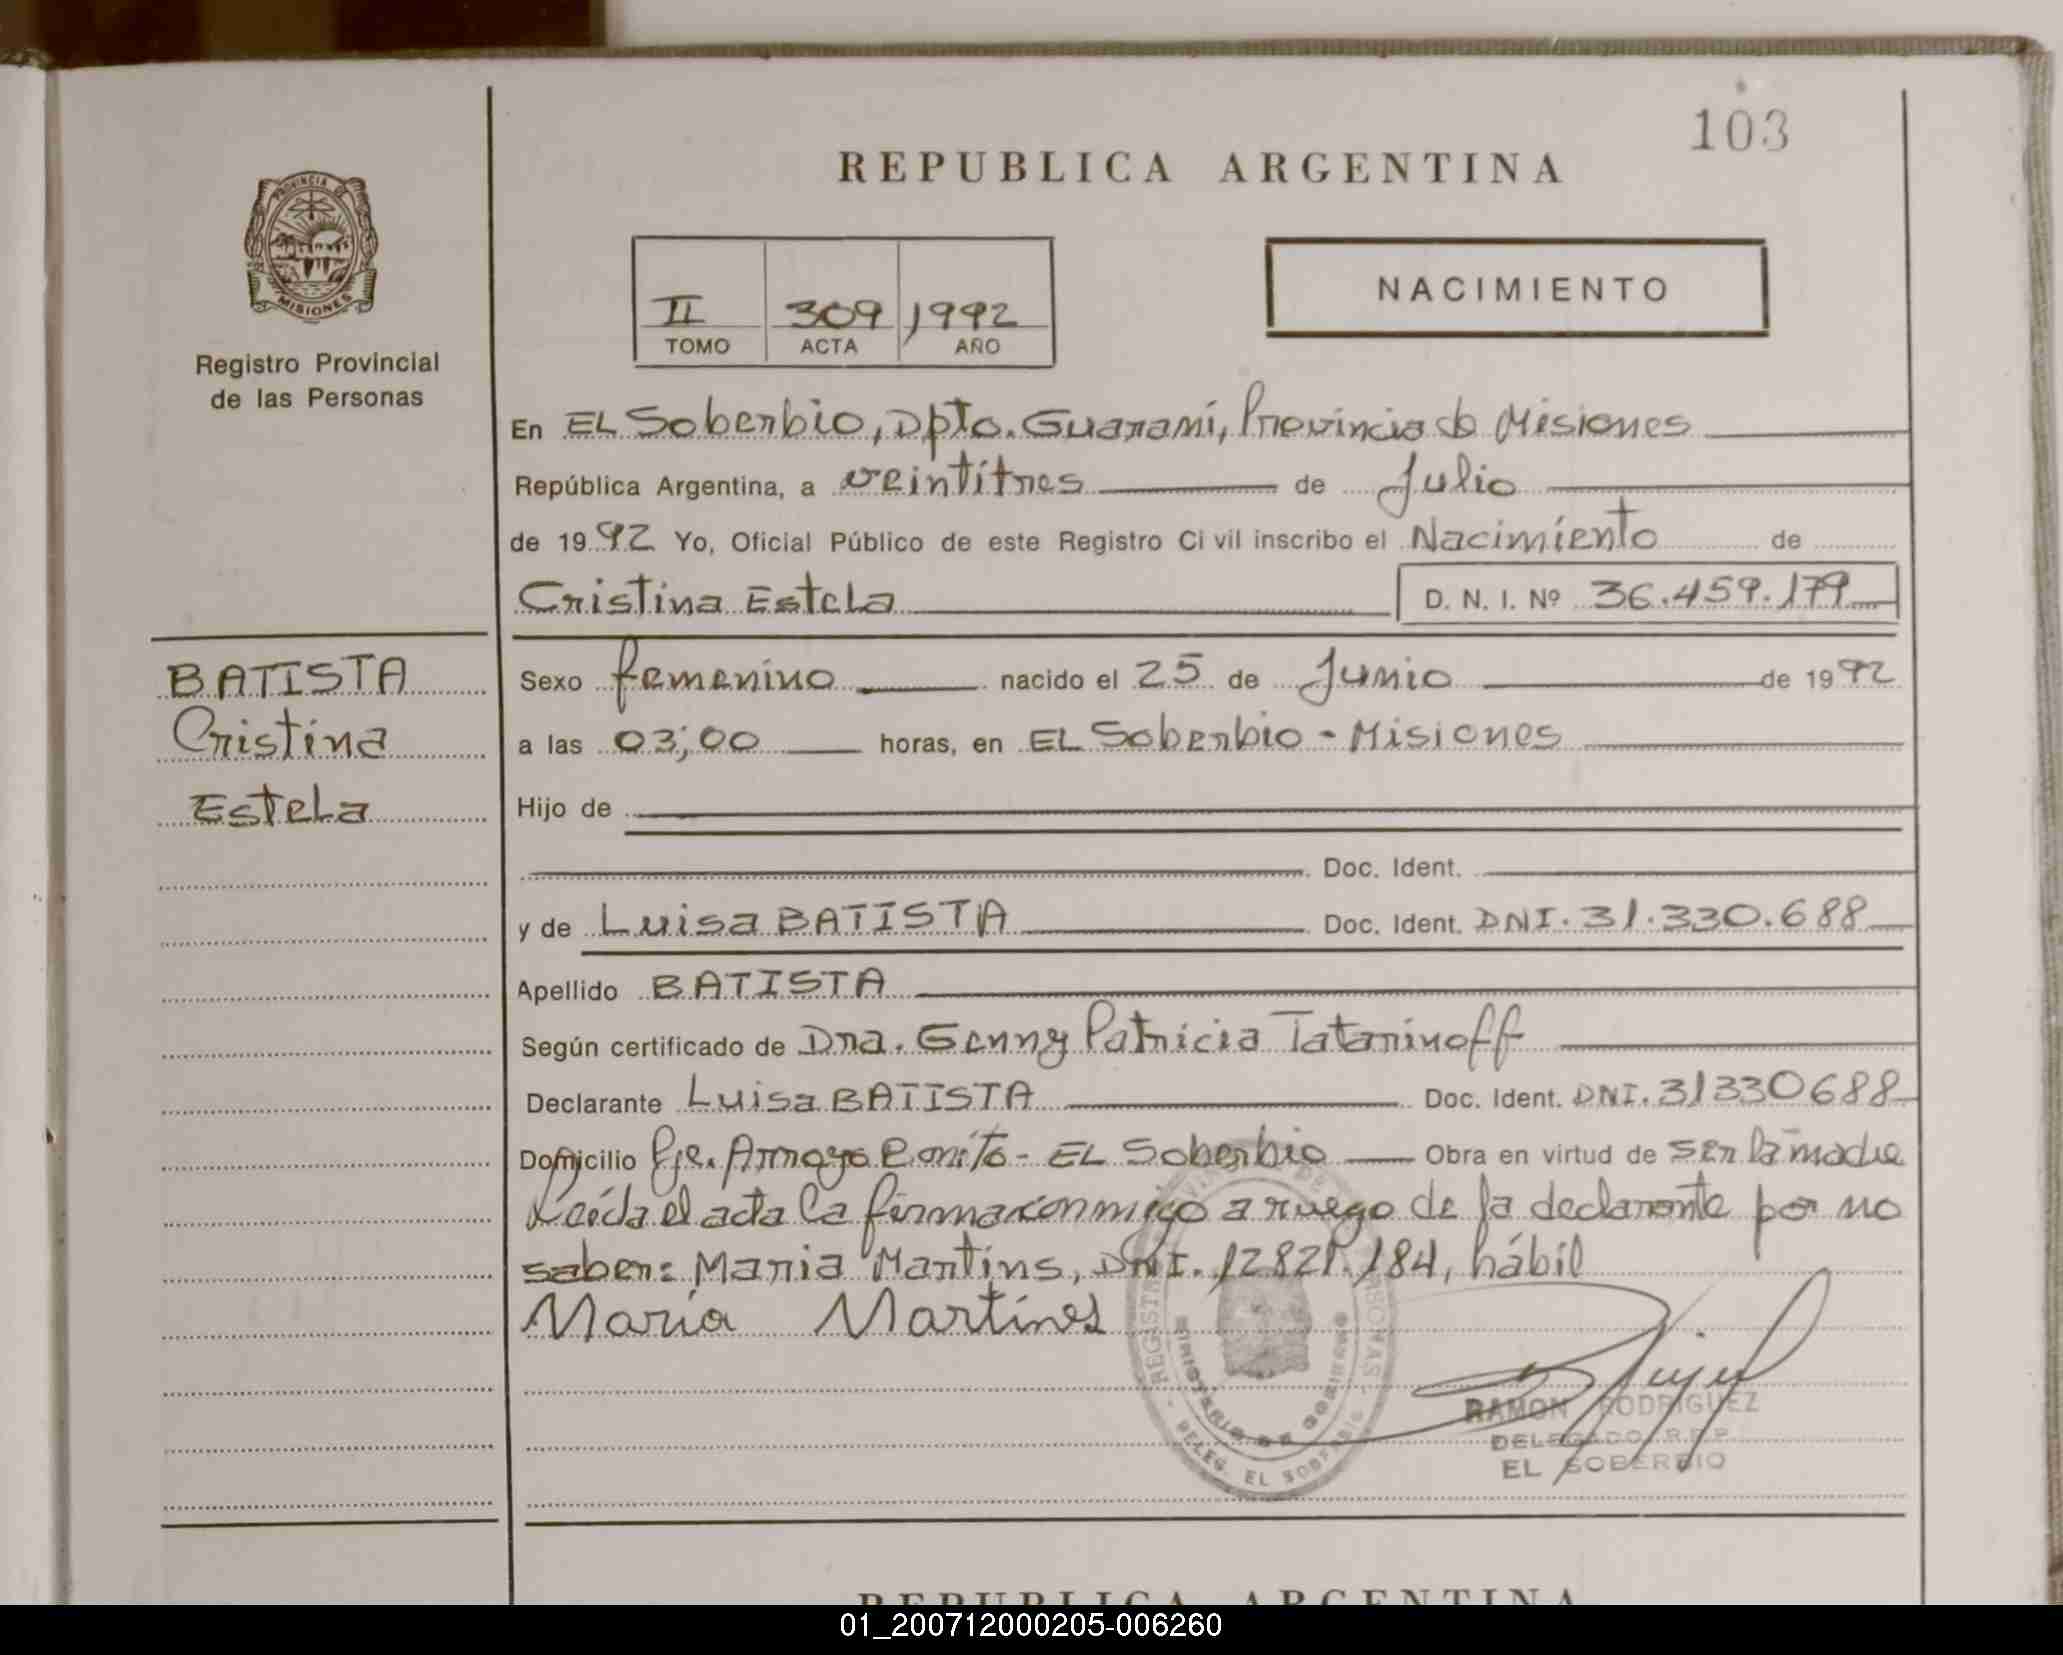 103
REPUBLICA ARGENTINA
PROVINCIA DE
MISIONES
Registro Provincial
de las Personas
II 309 1992
TOMO ACTA AÑO
NACIMIENTO
En EL Soberbio, Dpto. Guaraní, Provincia de Misiones
República Argentina, a veintitres de Julio
de 1992 Yo, Oficial Público de este Registro Civil inscribo el Nacimiento de
Cristina Estela D. N. I. Nº 36.459.179
BATISTA
Cristina
Estela
Sexo femenino nacido el 25 de Junio de 1992
a las 03;00 horas, en EL Soberbio - Misiones
Hijo de
Doc. Ident.
y de Luisa BATISTA Doc. Ident. DNI. 31.330.688
Apellido BATISTA
Según certificado de Dra. Genny Patricia Tatarinoff
Declarante Luisa BATISTA Doc. Ident. DNI. 31330688
Domicilio Pje. Arroyo Bonito - EL Soberbio Obra en virtud de ser la madre
Leída el acta la firma conmigo a ruego de la declarante por no
saber: Maria Martins, DNI. 12821.184, hábil
María Martines
MINISTERIO DE GOBIERNO
DELEG. EL SOBERBIO
RAMON RODRIGUEZ
DELEGADO R.P.P.
EL SOBERBIO
REPUBLICA ARGENTINA
01_200712000205-006260